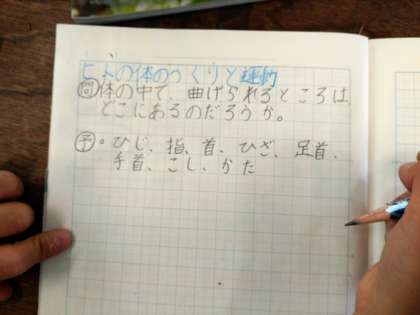 ヒトの体のつくりと運動
問 体の中で、曲げられるところは、
どこにあるのだろうか。
予 ・ひじ、指、首、ひざ、足首、
手首、こし、かた